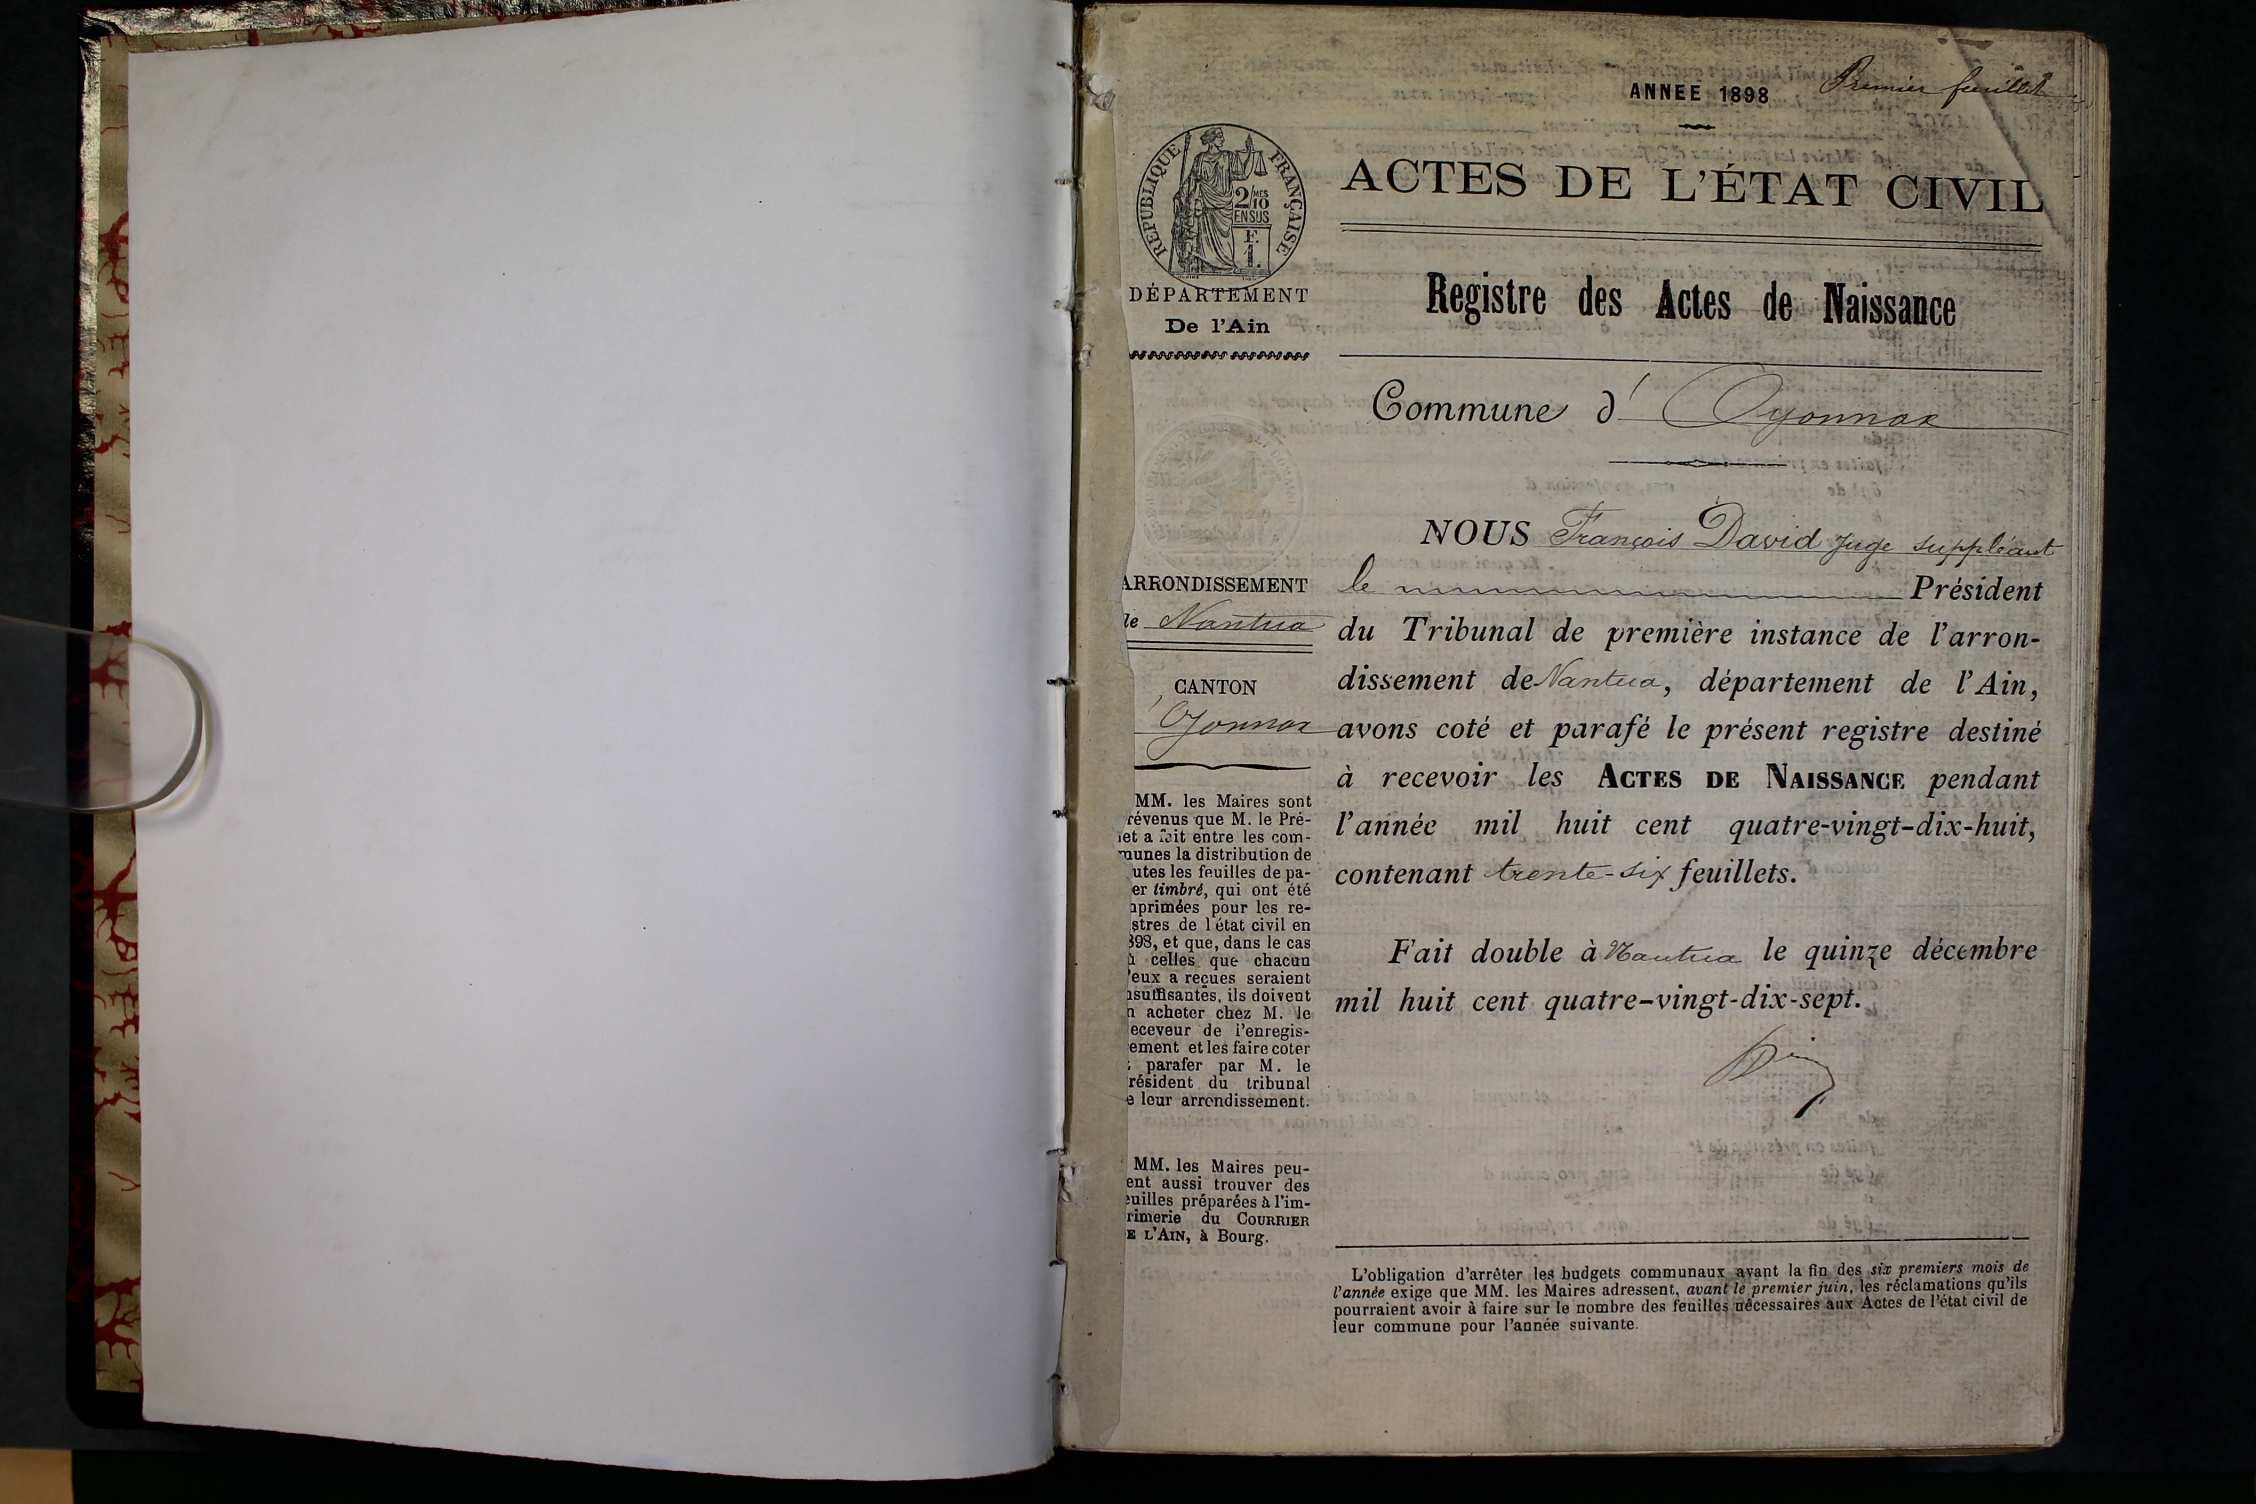 ANNEE 1898 Premier feuillet
RÉPUBLIQUE FRANÇAISE
2/MES
10
EN SUS
F.
1.
DÉPARTEMENT
De l'Ain
ACTES DE L'ÉTAT CIVIL
Registre des Actes de Naissance
Commune d' Oyonnax
ARRONDISSEMENT
de Nantua
CANTON
Oyonnax
MM. les Maires sont
révenus que M. le Pré-
et a fait entre les com-
munes la distribution de
utes les feuilles de pa-
er timbré, qui ont été
mprimées pour les re-
stres de l'état civil en
898, et que, dans le cas
ù celles que chacun
'eux a reçues seraient
nsuffisantes, ils doivent
n acheter chez M. le
eceveur de l'enregis-
ement et les faire coter
t parafer par M. le
résident du tribunal
e leur arrondissement.
MM. les Maires peu-
ent aussi trouver des
euilles préparées à l'im-
rimerie du COURRIER
E L'AIN, à Bourg.
NOUS François David Juge suppléant
le Président
du Tribunal de première instance de l'arron-
dissement de Nantua, département de l'Ain,
avons coté et parafé le présent registre destiné
à recevoir les ACTES DE NAISSANCE pendant
l'année mil huit cent quatre-vingt-dix-huit,
contenant trente-six feuillets.
Fait double à Nantua le quinze décembre
mil huit cent quatre-vingt-dix-sept.
L'obligation d'arrêter les budgets communaux avant la fin des six premiers mois de
l'année exige que MM. les Maires adressent, avant le premier juin, les réclamations qu'ils
pourraient avoir à faire sur le nombre des feuilles nécessaires aux Actes de l'état civil de
leur commune pour l'année suivante.